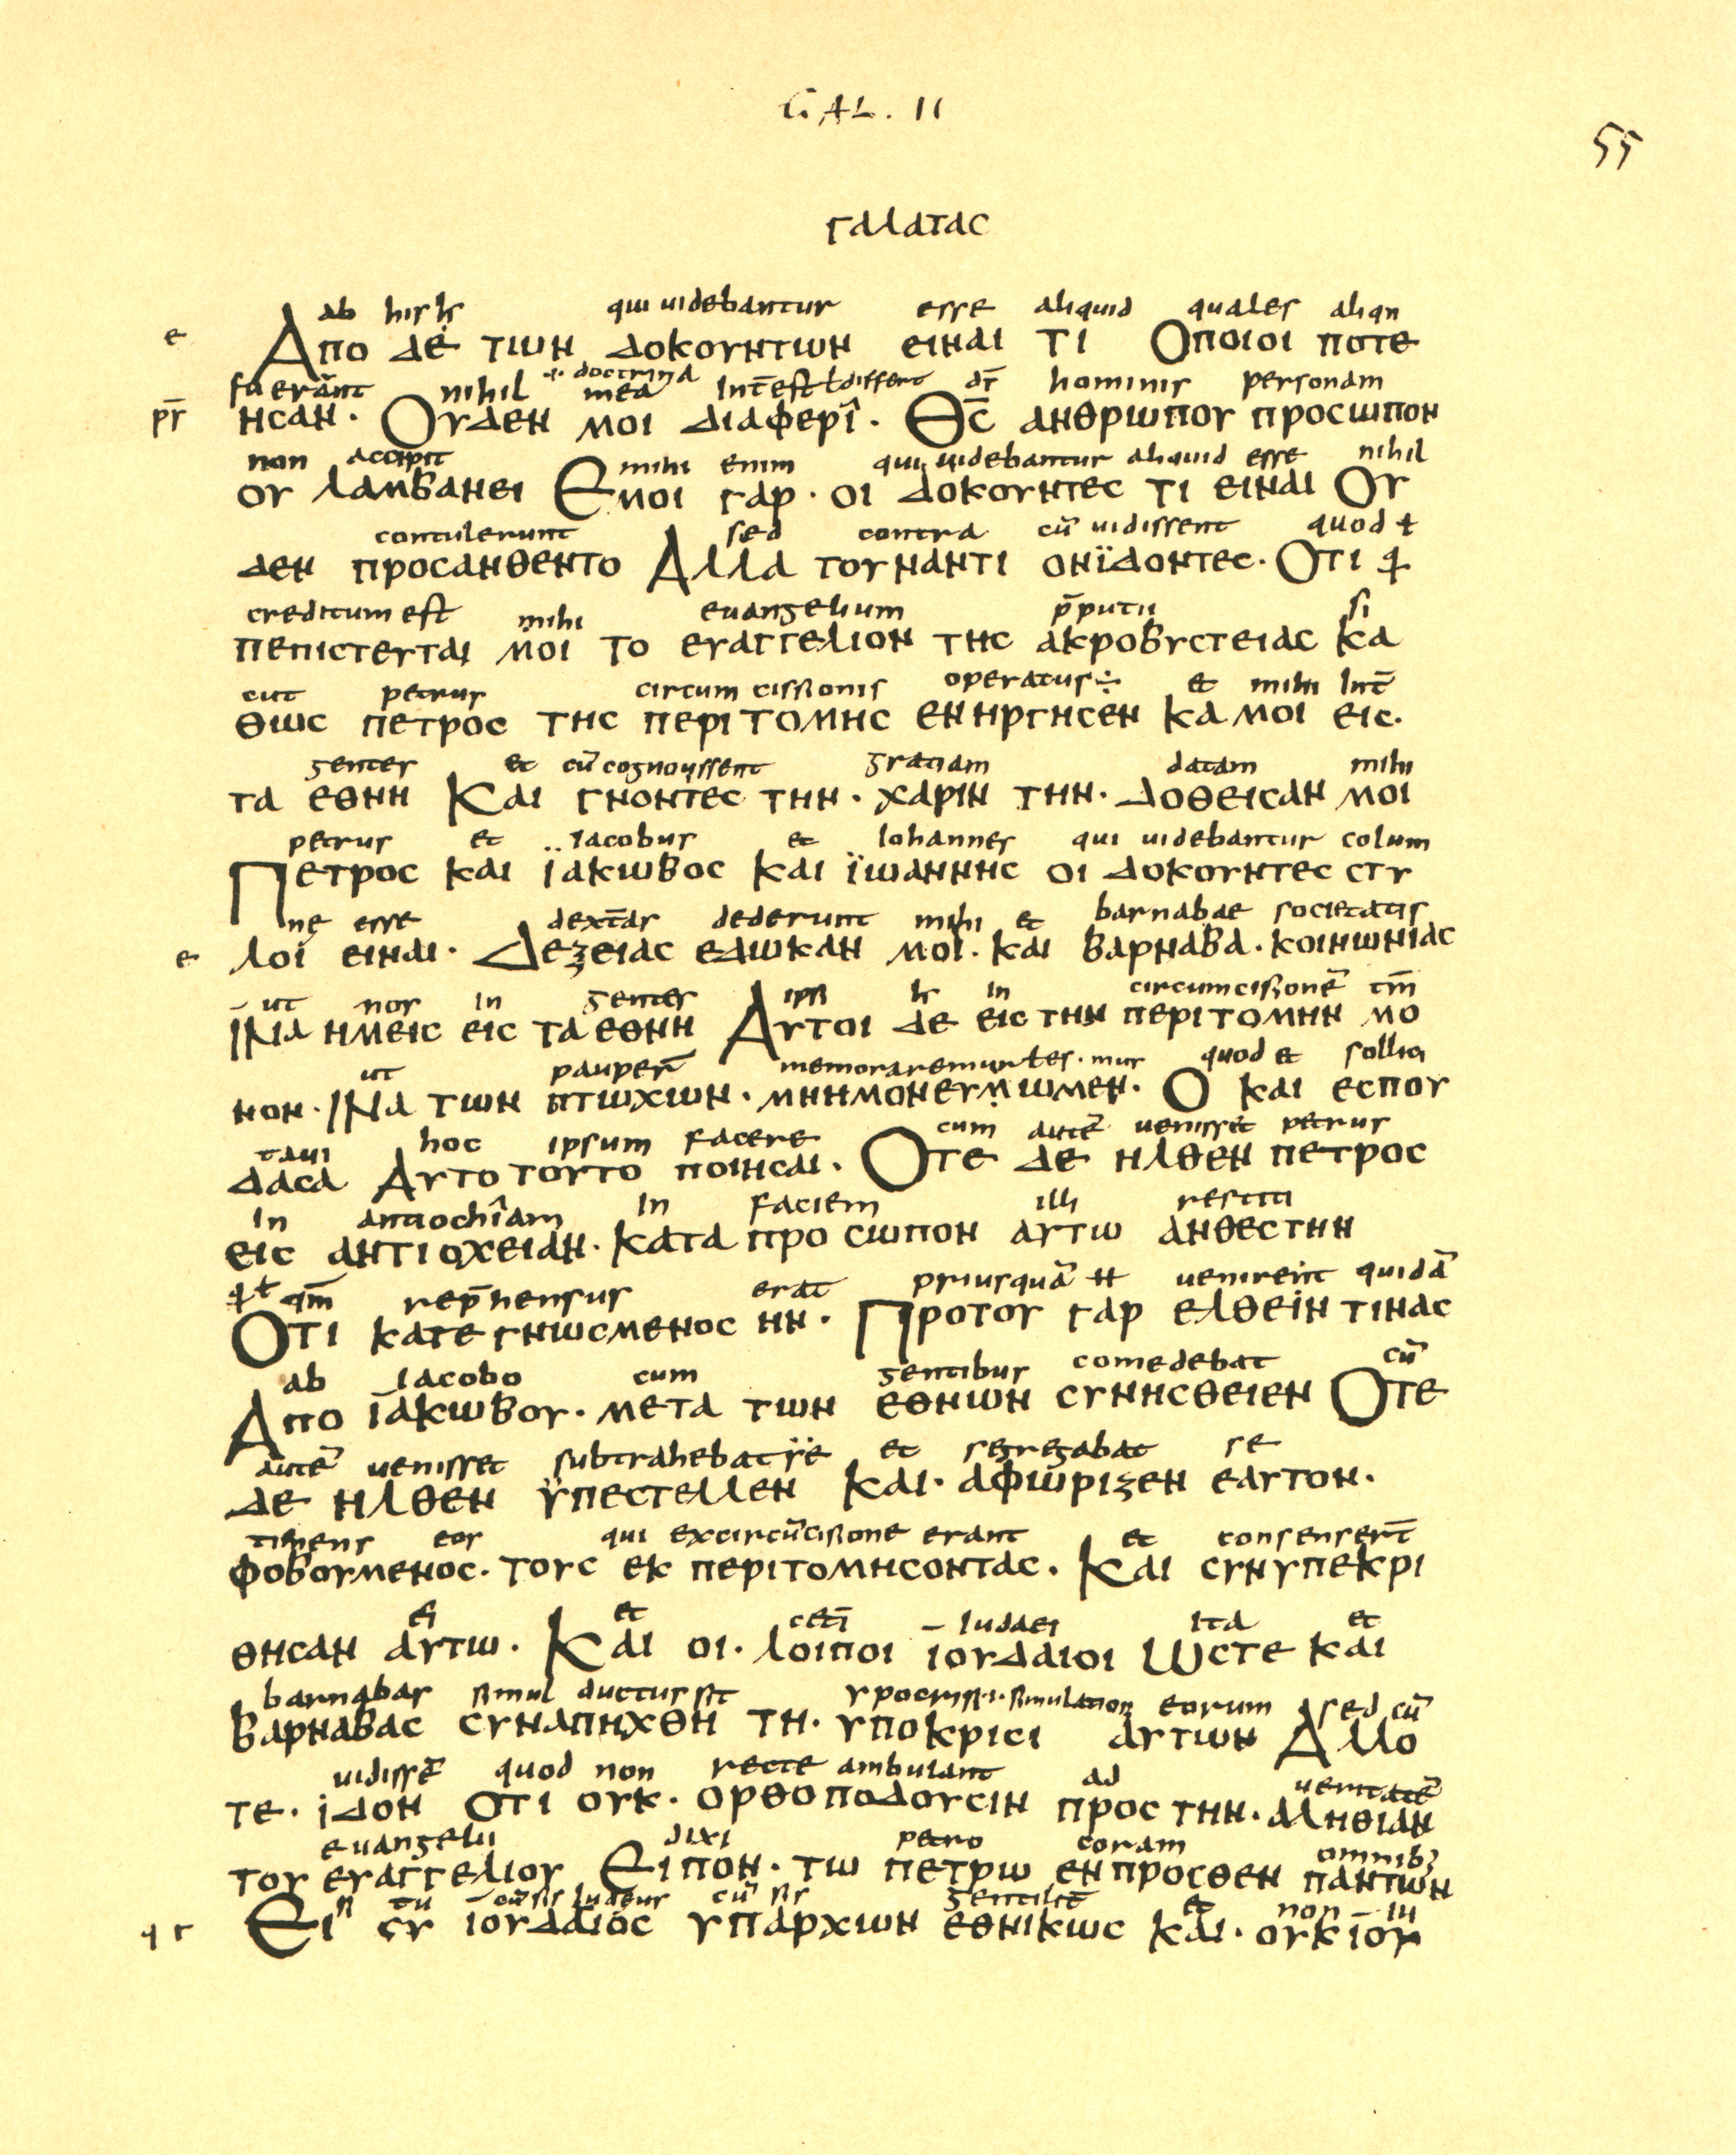 GAL. II
55
ΓΑΛΑΤΑC
ab his qui uidebantur esse aliquid quales aliqn
e Απο δε των δοκουντων ειναι τι Οποιοι ποτε
fuerant nihil mea doctrina hominis personam
ηcαν. Ουδεν μοι διαφερι. Θc ανθρωπου προcωπον
non accipit mihi enim qui uidebantur aliquid esse nihil
ου λαμβανει Εμοι γαρ. οι δοκουντεc τι ειναι Ου
contulerunt sed contra cū uidissent quod
δεν προcανθεντο Αλλα τουναντι ονϊδοντεc. Οτι
creditum est mihi euangelium p̄putii si
πεπιcτευται μοι το ευαγγελιον τηc ακροβυcτειαc κα
cut petrus circumcissionis operatus et mihi int̄
θωc πετροc τηc περιτομηc ενηργηcεν κα μοι ειc.
gentes et cū cognouissent gratiam datam mihi
τα εθνη Και γνοντεc την. χαριν την. δοθειcαν μοι
petrus et iacobus et iohannes qui uidebantur colum
Πετροc και ϊακωβοc και ϊωαννηc οι δοκουντεc cτυ
ne esse dext̄as dederunt mihi et barnabae societatis
e λοι ειναι. Δεξειαc εδωκαν μοι. και βαρναβα. κοινωνιαc
ut nos in gentes ipsi in circumcisionē tm̄
Ινα ημειc ειc τα εθνη Αυτοι δε ειc την περιτομην μο
ut pauper̄ quod et sollici
νον. Ινα των πτωχων. μνημονευμωμεν. Ο και εcπου
taui hoc ipsum facere cum autē uenisset petrus
δαcα Αυτο τουτο ποιηcαι. Οτε δε ηλθεν πετροc
in antiochiam in faciem illi restiti
ειc αντιοχειαν. κατα προcωπον αυτω ανθεcτην
qm̄ rep̄hensus erat priusquā uenirent quidā
Οτι κατεγνωcμενοc ην. Προτου γαρ ελθειν τιναc
ab iacobo cum gentibus comedebat cū
Απο ϊακωβου. μετα των εθνων cυνηcθειεν Οτε
autē uenisset subtrahebat se et segregabat se
δε ηλθεν ϋπεcτελλεν και. αφωριζεν εαυτον.
timens eos qui excircūcisione erant et consenser̄t
φοβουμενοc. τουc εκ περιτομηcονταc. Και cυνυπεκρι
ei et cet̄i iudaei ita et
θηcαν αυτω. Και οι. λοιποι ιουδαιοι Ωcτε και
barnabas simul ductus sit ypocrisi.i.simulation eorum sed cū
βαρναβαc cυναπηχθη τη. υποκριcι αυτων Αλλο
uidissē quod non recte ambulant ad ueritatē
τε. ιδον οτι ουκ. ορθοποδουcιν προc την. αληθιαν
euangelii dixi petro coram omnib;
του ευαγγελιου Ειπον. τω πετρω ενπροcθεν παντων
si tu cū sis iudeus cū sis et non iu
Ει cυ ιουδαιοc υπαρχων εθνικωc και. ουκ ιου